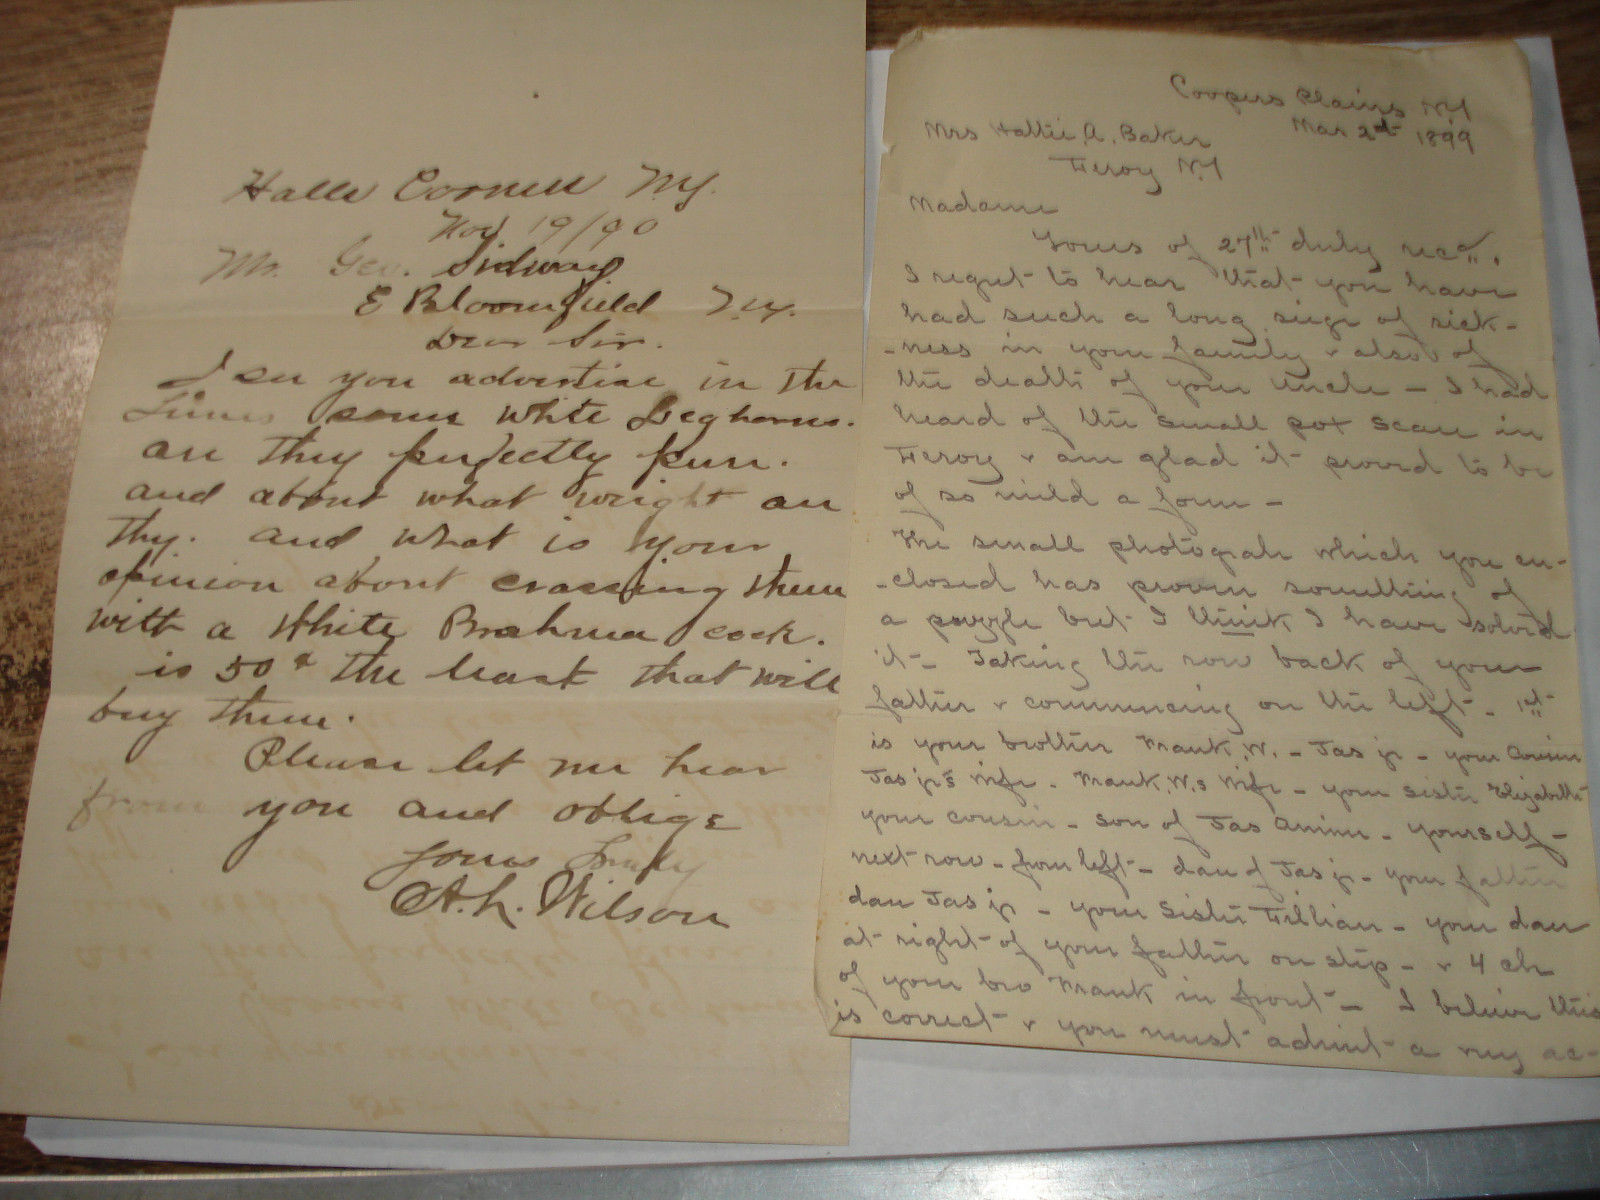 Halls Corners N.Y.
Nov 19/90
Mr. Geo. Sidway
E Bloomfield N.Y.
Dear Sir.
I see you advertise in the
Times some white Leghorns.
are they perfectly pure.
and about what weight are
they. and what is your
opinion about crossing them
with a White Brahma cock.
is 50¢ the least that will
buy them.
Please let me hear
from you and oblige
Yours Truly
A. L. Wilson
Coopers Plains N.Y
Mar 2nd 1899
Mrs Hattie A. Baker
Leroy N.Y
Madame
Yours of 27th duly recd.
I regret to hear that you have
had such a long siege of sick-
-ness in your family & also of
the death of your Uncle - I had
heard of the small pox scare in
Leroy & am glad it proved to be
of so mild a form -
The small photograh which you en-
-closed has proven something of
a puzzle but I think I have solved
it - Taking the row back of your
father & commencing on the left - 1st
is your brother Frank.W. - Jas jr - your Cousin
Jas jr's Wife - Frank.W.s Wife - your sister Elizabeth
your cousin - son of Jas - yourself -
next row - from left - dau of Jas jr - your father
dau Jas jr - your sister Lillian - your dau
at right of your father on step - & 4 ch
of your bro Frank in front - I believe this
is correct & you must admit a very ac-